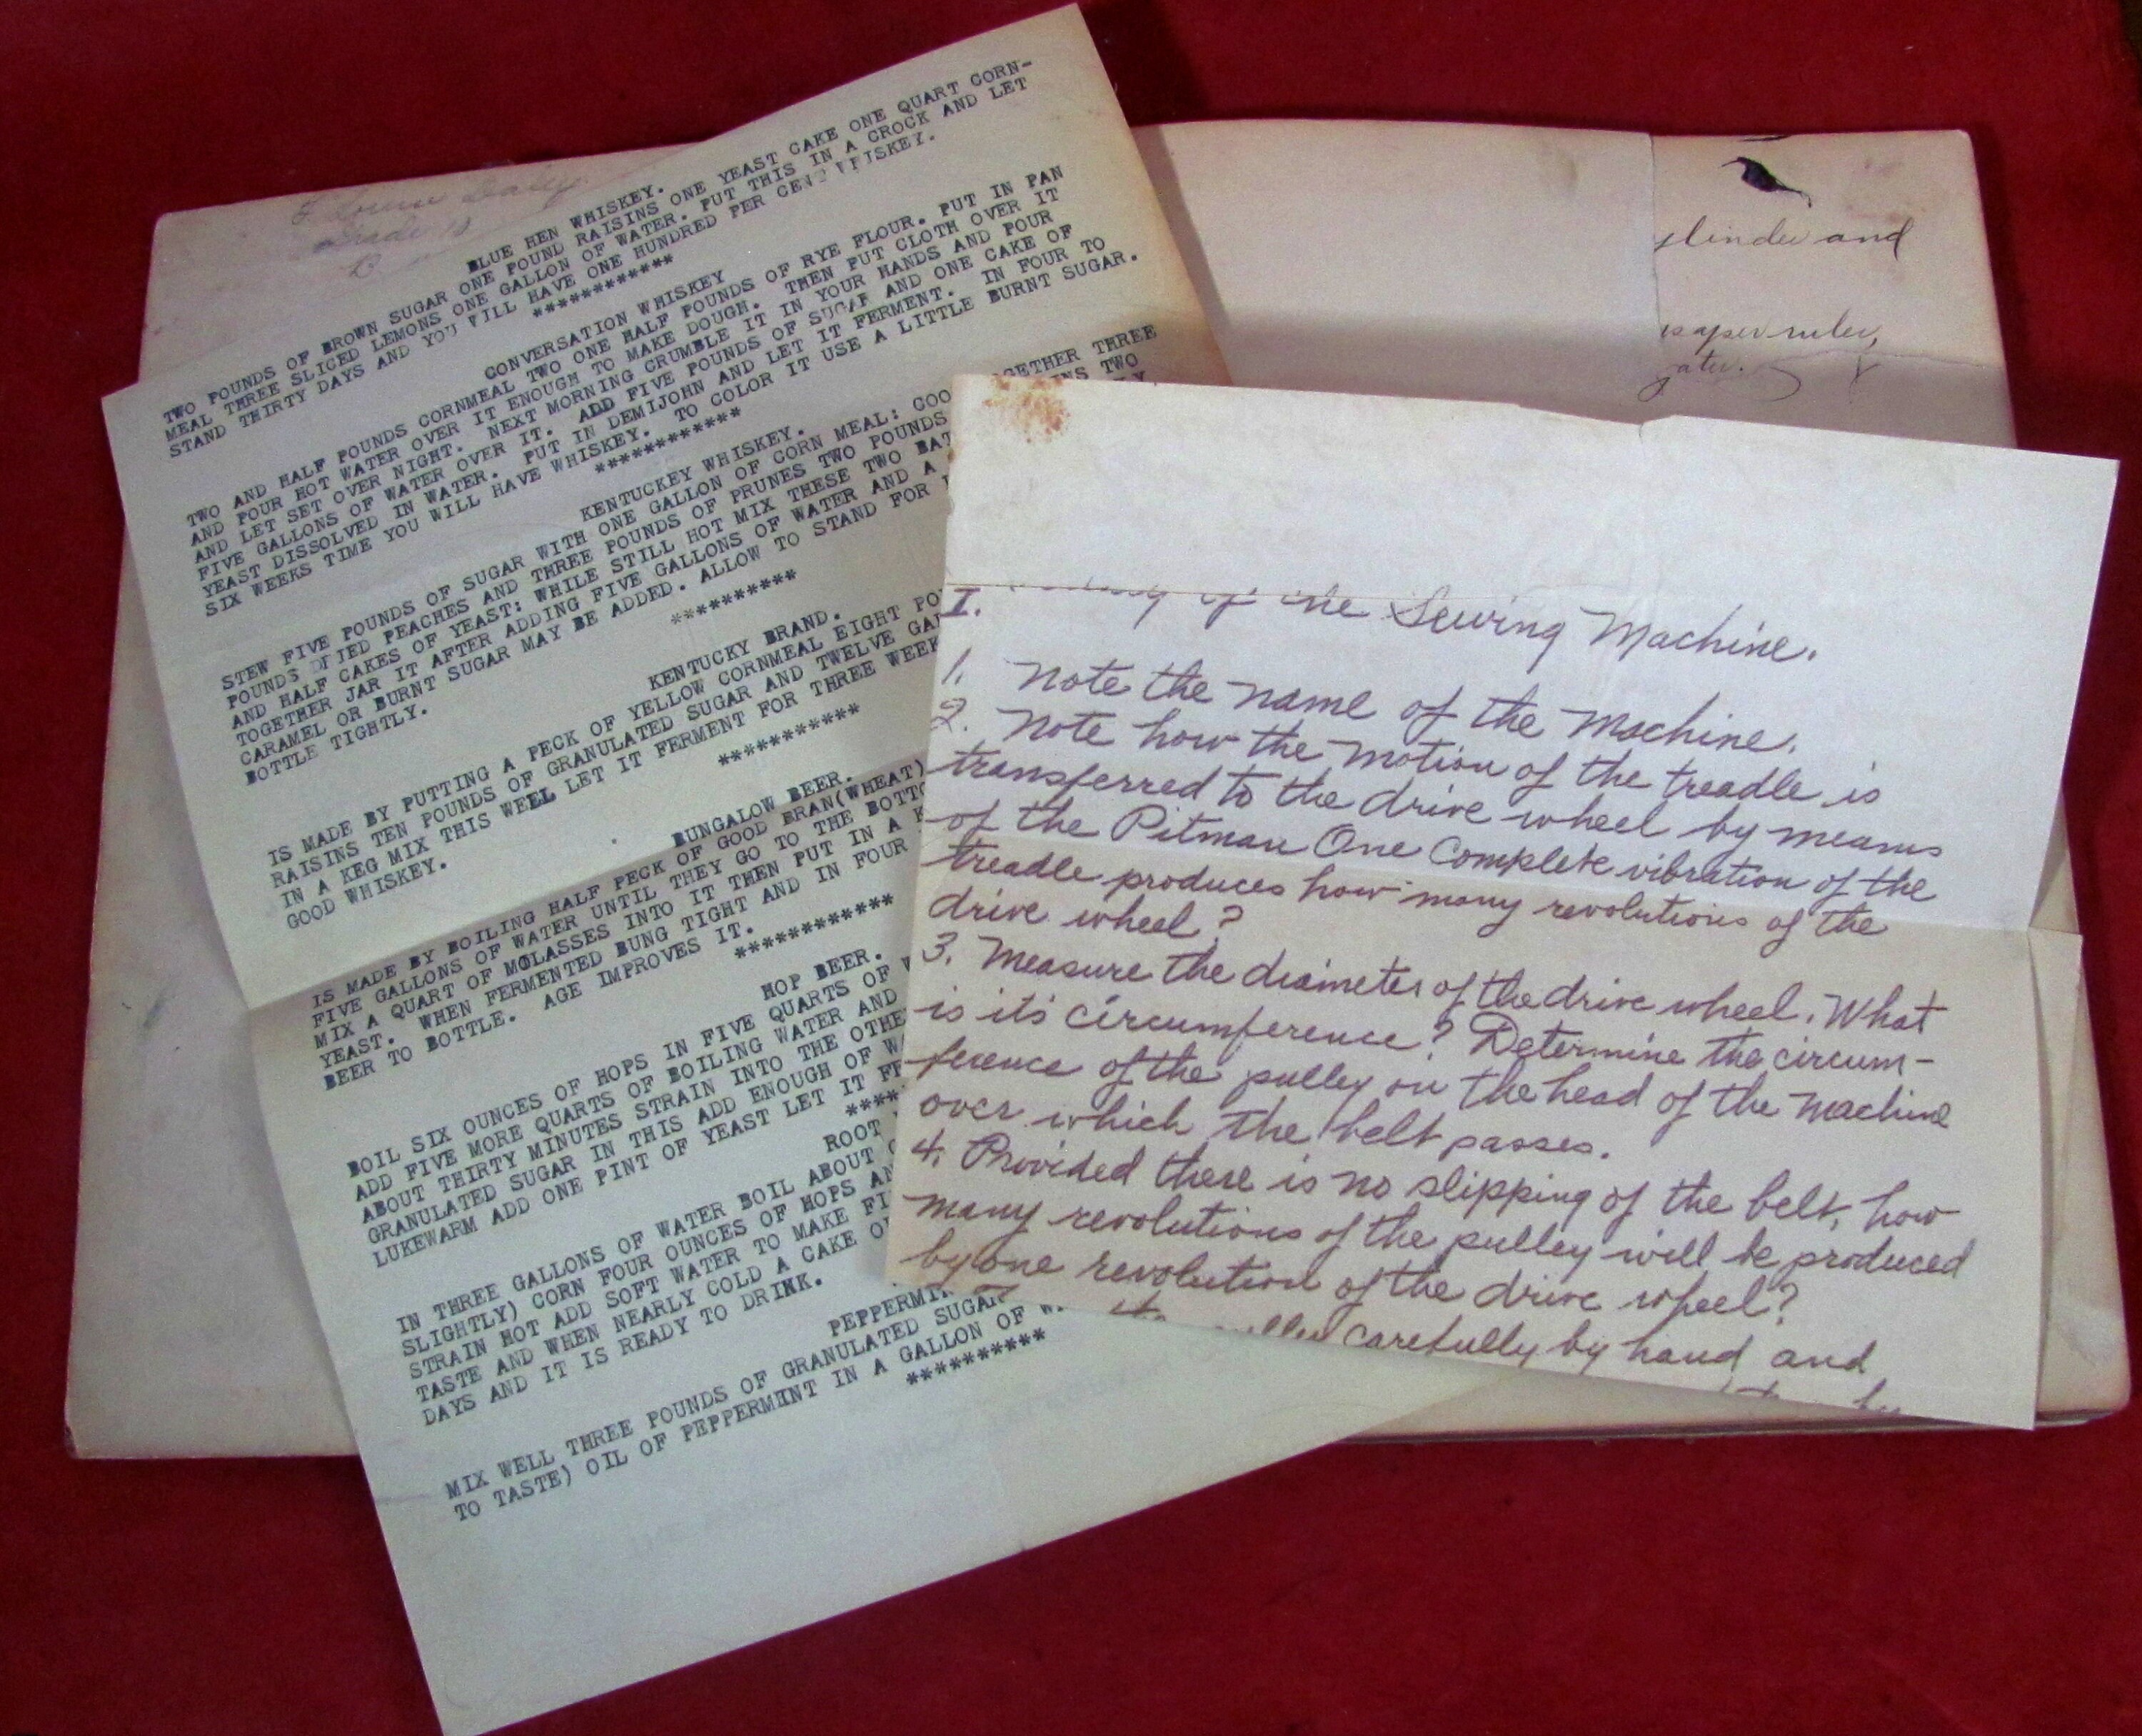 BLUE HEN WHISKEY.
TWO POUNDS OF BROWN SUGAR ONE POUND RAISINS ONE YEAST CAKE ONE QUART CORN-
MEAL THREE SLICED LEMONS ONE GALLON OF WATER. PUT THIS IN A CROCK AND LET
STAND THIRTY DAYS AND YOU WILL HAVE ONE HUNDRED PER CENT WHISKEY.
***********
CONVERSATION WHISKEY
TWO AND HALF POUNDS CORNMEAL TWO ONE HALF POUNDS OF RYE FLOUR. PUT IN PAN
AND POUR HOT WATER OVER IT ENOUGH TO MAKE DOUGH. THEN PUT CLOTH OVER IT
AND LET SET OVER NIGHT. NEXT MORNING CRUMBLE IT IN YOUR HANDS AND POUR
FIVE GALLONS OF WATER OVER IT. ADD FIVE POUNDS OF SUGAR AND ONE CAKE OF
YEAST DISSOLVED IN WATER. PUT IN DEMIJOHN AND LET IT FERMENT. IN FOUR TO
SIX WEEKS TIME YOU WILL HAVE WHISKEY. TO COLOR IT USE A LITTLE BURNT SUGAR.
***********
KENTUCKEY WHISKEY.
STEW FIVE POUNDS OF SUGAR WITH ONE GALLON OF CORN MEAL: COO OGETHER THREE
POUNDS DRIED PEACHES AND THREE POUNDS OF PRUNES TWO POUNDS INS TWO
AND HALF CAKES OF YEAST: WHILE STILL HOT MIX THESE TWO BAT LY
TOGETHER JAR IT AFTER ADDING FIVE GALLONS OF WATER AND A
CARAMEL OR BURNT SUGAR MAY BE ADDED. ALLOW TO STAND FOR
BOTTLE TIGHTLY.
**********
KENTUCKY BRAND.
IS MADE BY PUTTING A PECK OF YELLOW CORNMEAL EIGHT PO
RAISINS TEN POUNDS OF GRANULATED SUGAR AND TWELVE GAL
IN A KEG MIX THIS WELL LET IT FERMENT FOR THREE WEEK
GOOD WHISKEY.
***********
BUNGALOW BEER.
IS MADE BY BOILING HALF PECK OF GOOD BRAN(WHEAT)
FIVE GALLONS OF WATER UNTIL THEY GO TO THE BOTTO
MIX A QUART OF MOLASSES INTO IT THEN PUT IN A K
YEAST. WHEN FERMENTED BUNG TIGHT AND IN FOUR
BEER TO BOTTLE. AGE IMPROVES IT.
************
HOP BEER.
BOIL SIX OUNCES OF HOPS IN FIVE QUARTS OF W
ADD FIVE MORE QUARTS OF BOILING WATER AND
ABOUT THIRTY MINUTES STRAIN INTO THE OTHE
GRANULATED SUGAR IN THIS ADD ENOUGH OF WA
LUKEWARM ADD ONE PINT OF YEAST LET IT FE
****
ROOT
IN THREE GALLONS OF WATER BOIL ABOUT
SLIGHTLY) CORN FOUR OUNCES OF HOPS AN
STRAIN HOT ADD SOFT WATER TO MAKE FI
TASTE AND WHEN NEARLY COLD A CAKE O
DAYS AND IT IS READY TO DRINK.
PEPPERMI
MIX WELL THREE POUNDS OF GRANULATED SUGAR
TO TASTE) OIL OF PEPPERMINT IN A GALLON OF W
**********
ylinder and
ruler,
I. of the Sewing Machine.
1. Note the name of the Machine.
2. Note how the motion of the treadle is
transferred to the drive wheel by means
of the Pitman One Complete vibration of the
treadle produces how many revolutions of the
drive wheel?
3. Measure the diameter of the drive wheel. What
is it's circumference? Determine the circum-
ference of the pulley on the head of the machine
over which the belt passes.
4. Provided there is no slipping of the belt, how
many revolutions of the pulley will be produced
by one revolution of the drive wheel?
carefully by hand and